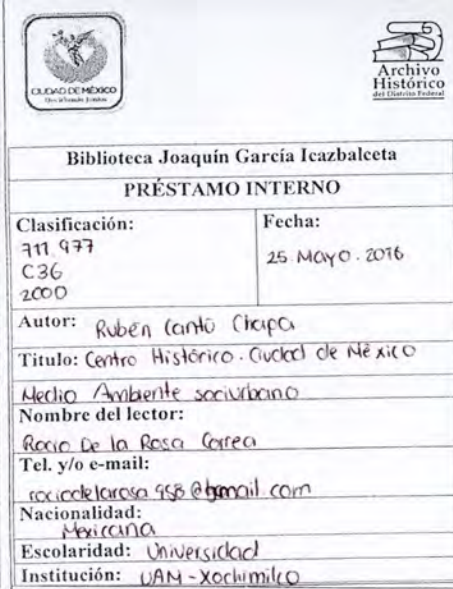 CIUDAD DE MÉXICO
Archivo
Histórico
del Distrito Federal
Biblioteca Joaquín García Icazbalceta
PRÉSTAMO INTERNO
Clasificación:
711.977
C36
2000
Fecha:
25. Mayo. 2016
Autor: Rubén Cantú Chapa
Titulo: Centro Histórico. Ciudad de México
Medio Ambiente sociurbano
Nombre del lector:
Rocio De la Rosa Correa
Tel. y/o e-mail:
rociodelarosa958@gmail.com
Nacionalidad:
Mexicana
Escolaridad: Universidad
Institución: UAM-Xochimilco